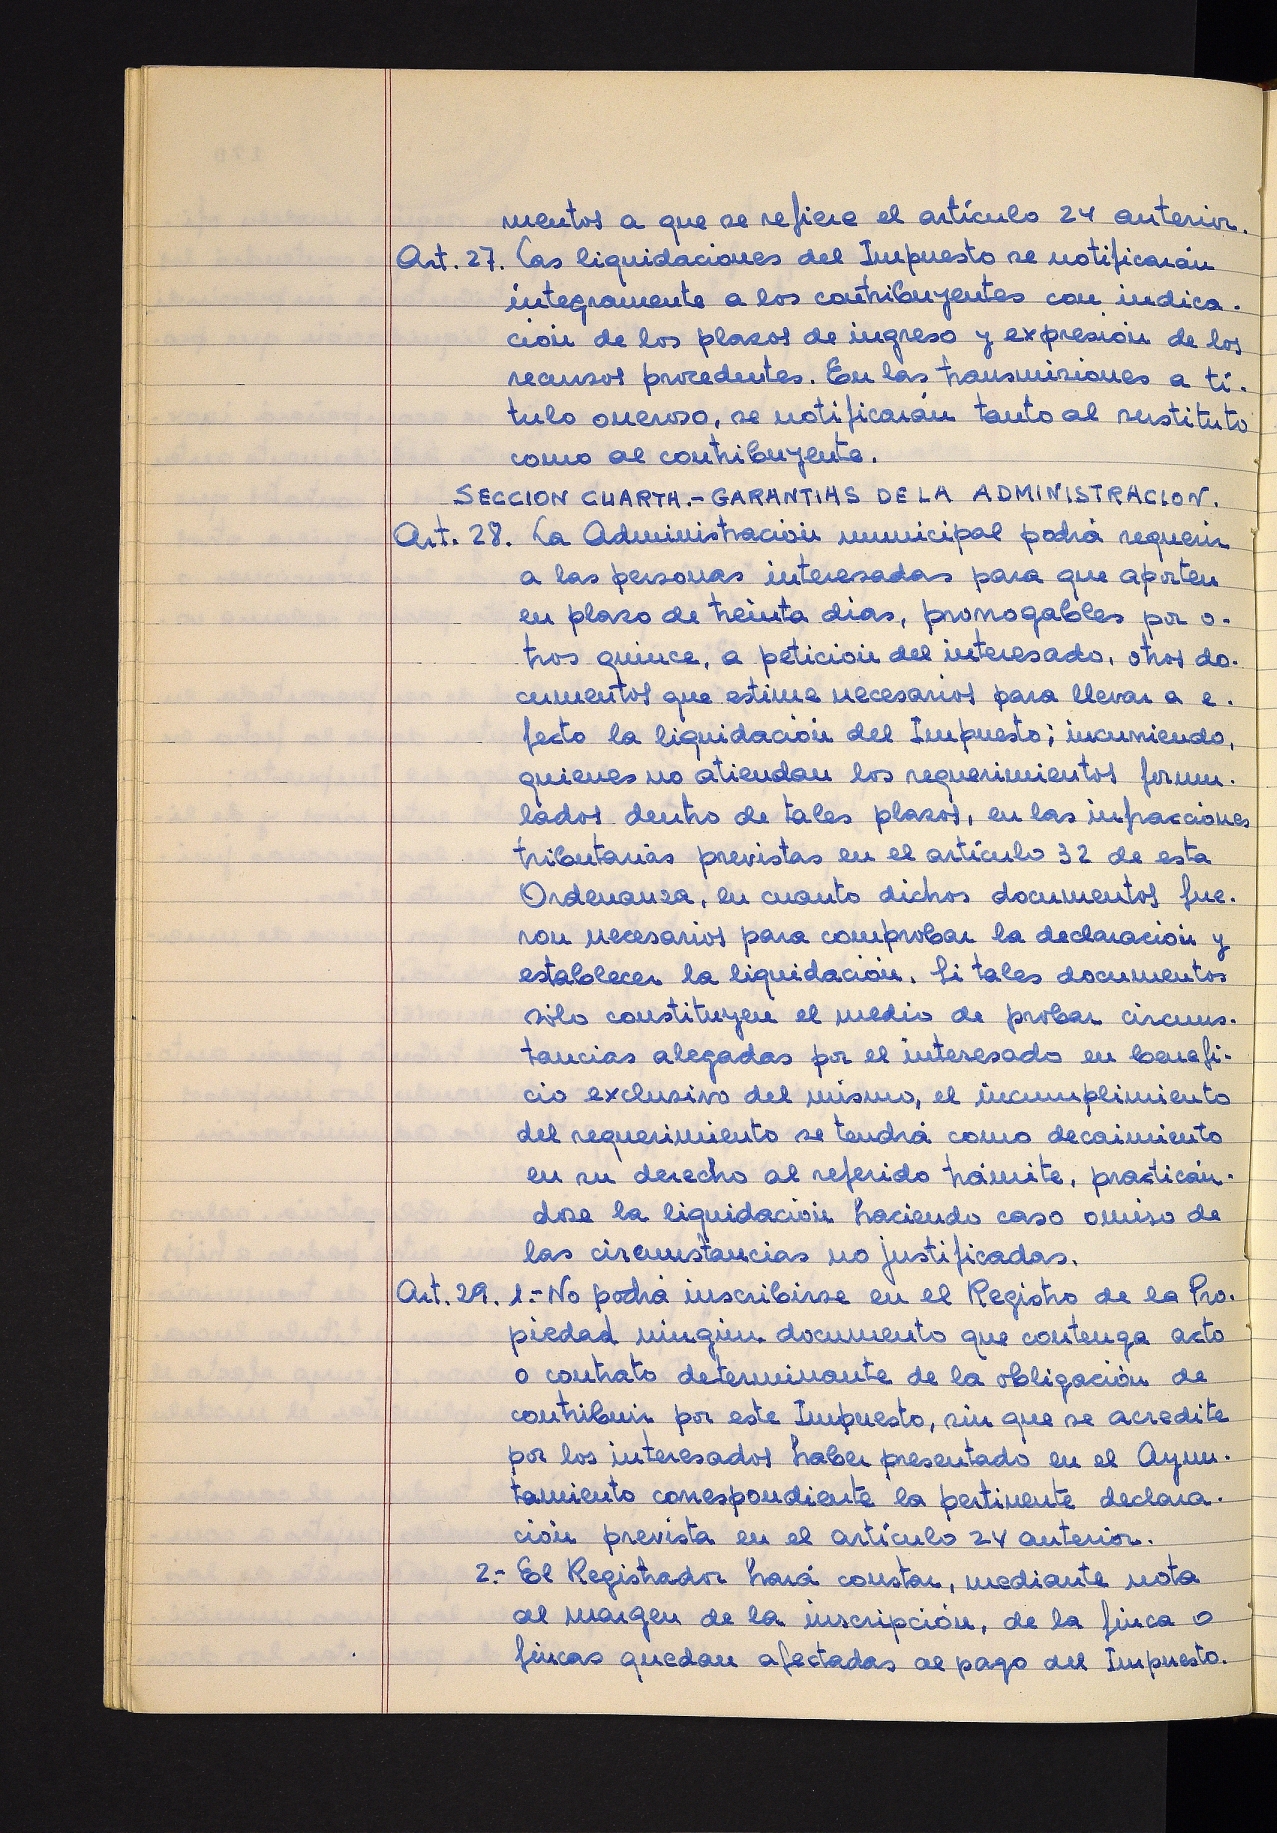 mentos a que se refiere el artículo 24 anterior.
Art. 27. Las liquidaciones del Impuesto se notificarán
íntegramente a los contribuyentes con indica-
ción de los plazos de ingreso y expresión de los
recursos procedentes. En las transmisiones a tí-
tulo oneroso, se notificarán tanto al sustituto
como al contribuyente.
SECCION CUARTA.- GARANTIAS DE LA ADMINISTRACION.
Art. 28. La Administración municipal podrá requerir
a las personas interesadas para que aporten
en plazo de treinta días, prorrogables por o-
tros quince, a petición del interesado, otros do-
cumentos que estime necesarios para llevar a e-
fecto la liquidación del Impuesto; incurriendo,
quienes no atiendan los requerimientos formu-
lados dentro de tales plazos, en las infracciones
tributarias previstas en el artículo 32 de esta
Ordenanza, en cuanto dichos documentos fue-
ron necesarios para comprobar la declaración y
establecer la liquidación. Si tales documentos
sólo constituyen el medio de probar circuns-
tancias alegadas por el interesado en benefi-
cio exclusivo del mismo, el incumplimiento
del requerimiento se tendrá como decaimiento
en su derecho al referido trámite, practicán-
dose la liquidación haciendo caso omiso de
las circunstancias no justificadas.
Art. 29. 1.- No podrá inscribirse en el Registro de la Pro-
piedad ningún documento que contenga acto
o contrato determinante de la obligación de
contribuir por este Impuesto, sin que se acredite
por los interesados haber presentado en el Ayun-
tamiento correspondiente la pertinente declara-
ción prevista en el artículo 24 anterior.
2.- El Registrador hará constar, mediante nota
al margen de la inscripción, de la finca o
fincas quedan afectadas al pago del Impuesto.